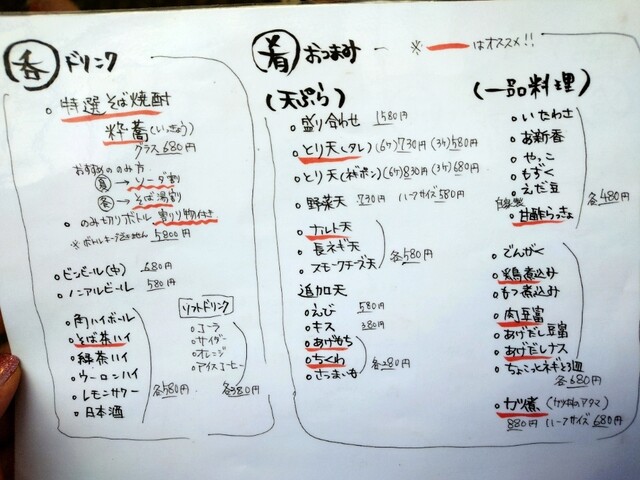 呑 ドリンク
特選そば焼酎
粋蕎(いっきょう)
グラス 680円
おすすめののみ方
夏→ソーダ割
冬→そば湯割
のみ切りボトル 割り物付き
※ボトルキープ出来ません 5800円
ビンビール(中) 680円
ノンアルビール 580円
角ハイボール
そば茶ハイ
緑茶ハイ
ウーロンハイ
レモンサワー
日本酒
各580円
ソフトドリンク
コーラ
サイダー
オレンジ
アイスコーヒー
各380円
肴 おつまみ ー ※ ー はオススメ!!
(天ぷら)
盛り合わせ 1580円
とり天(タレ) (6ケ)730円 (3ケ)580円
とり天(ネギポン) (6ケ)830円 (3ケ)680円
野菜天 730円 ハーフサイズ580円
ナルト天
長ネギ天
スモークチーズ天
各580円
追加天
えび 580円
キス 380円
あげもち
ちくわ
さつまいも
各280円
(一品料理)
いたわさ
お新香
やっこ
もずく
えだ豆
自家製 甘酢らっきょ
各480円
でんがく
鶏煮込み
もつ煮込み
肉豆富
あげだし豆富
あげだしナス
ちょこっとネギとろ皿
各680円
カツ煮 (カツ丼のアタマ)
880円 ハーフサイズ 680円